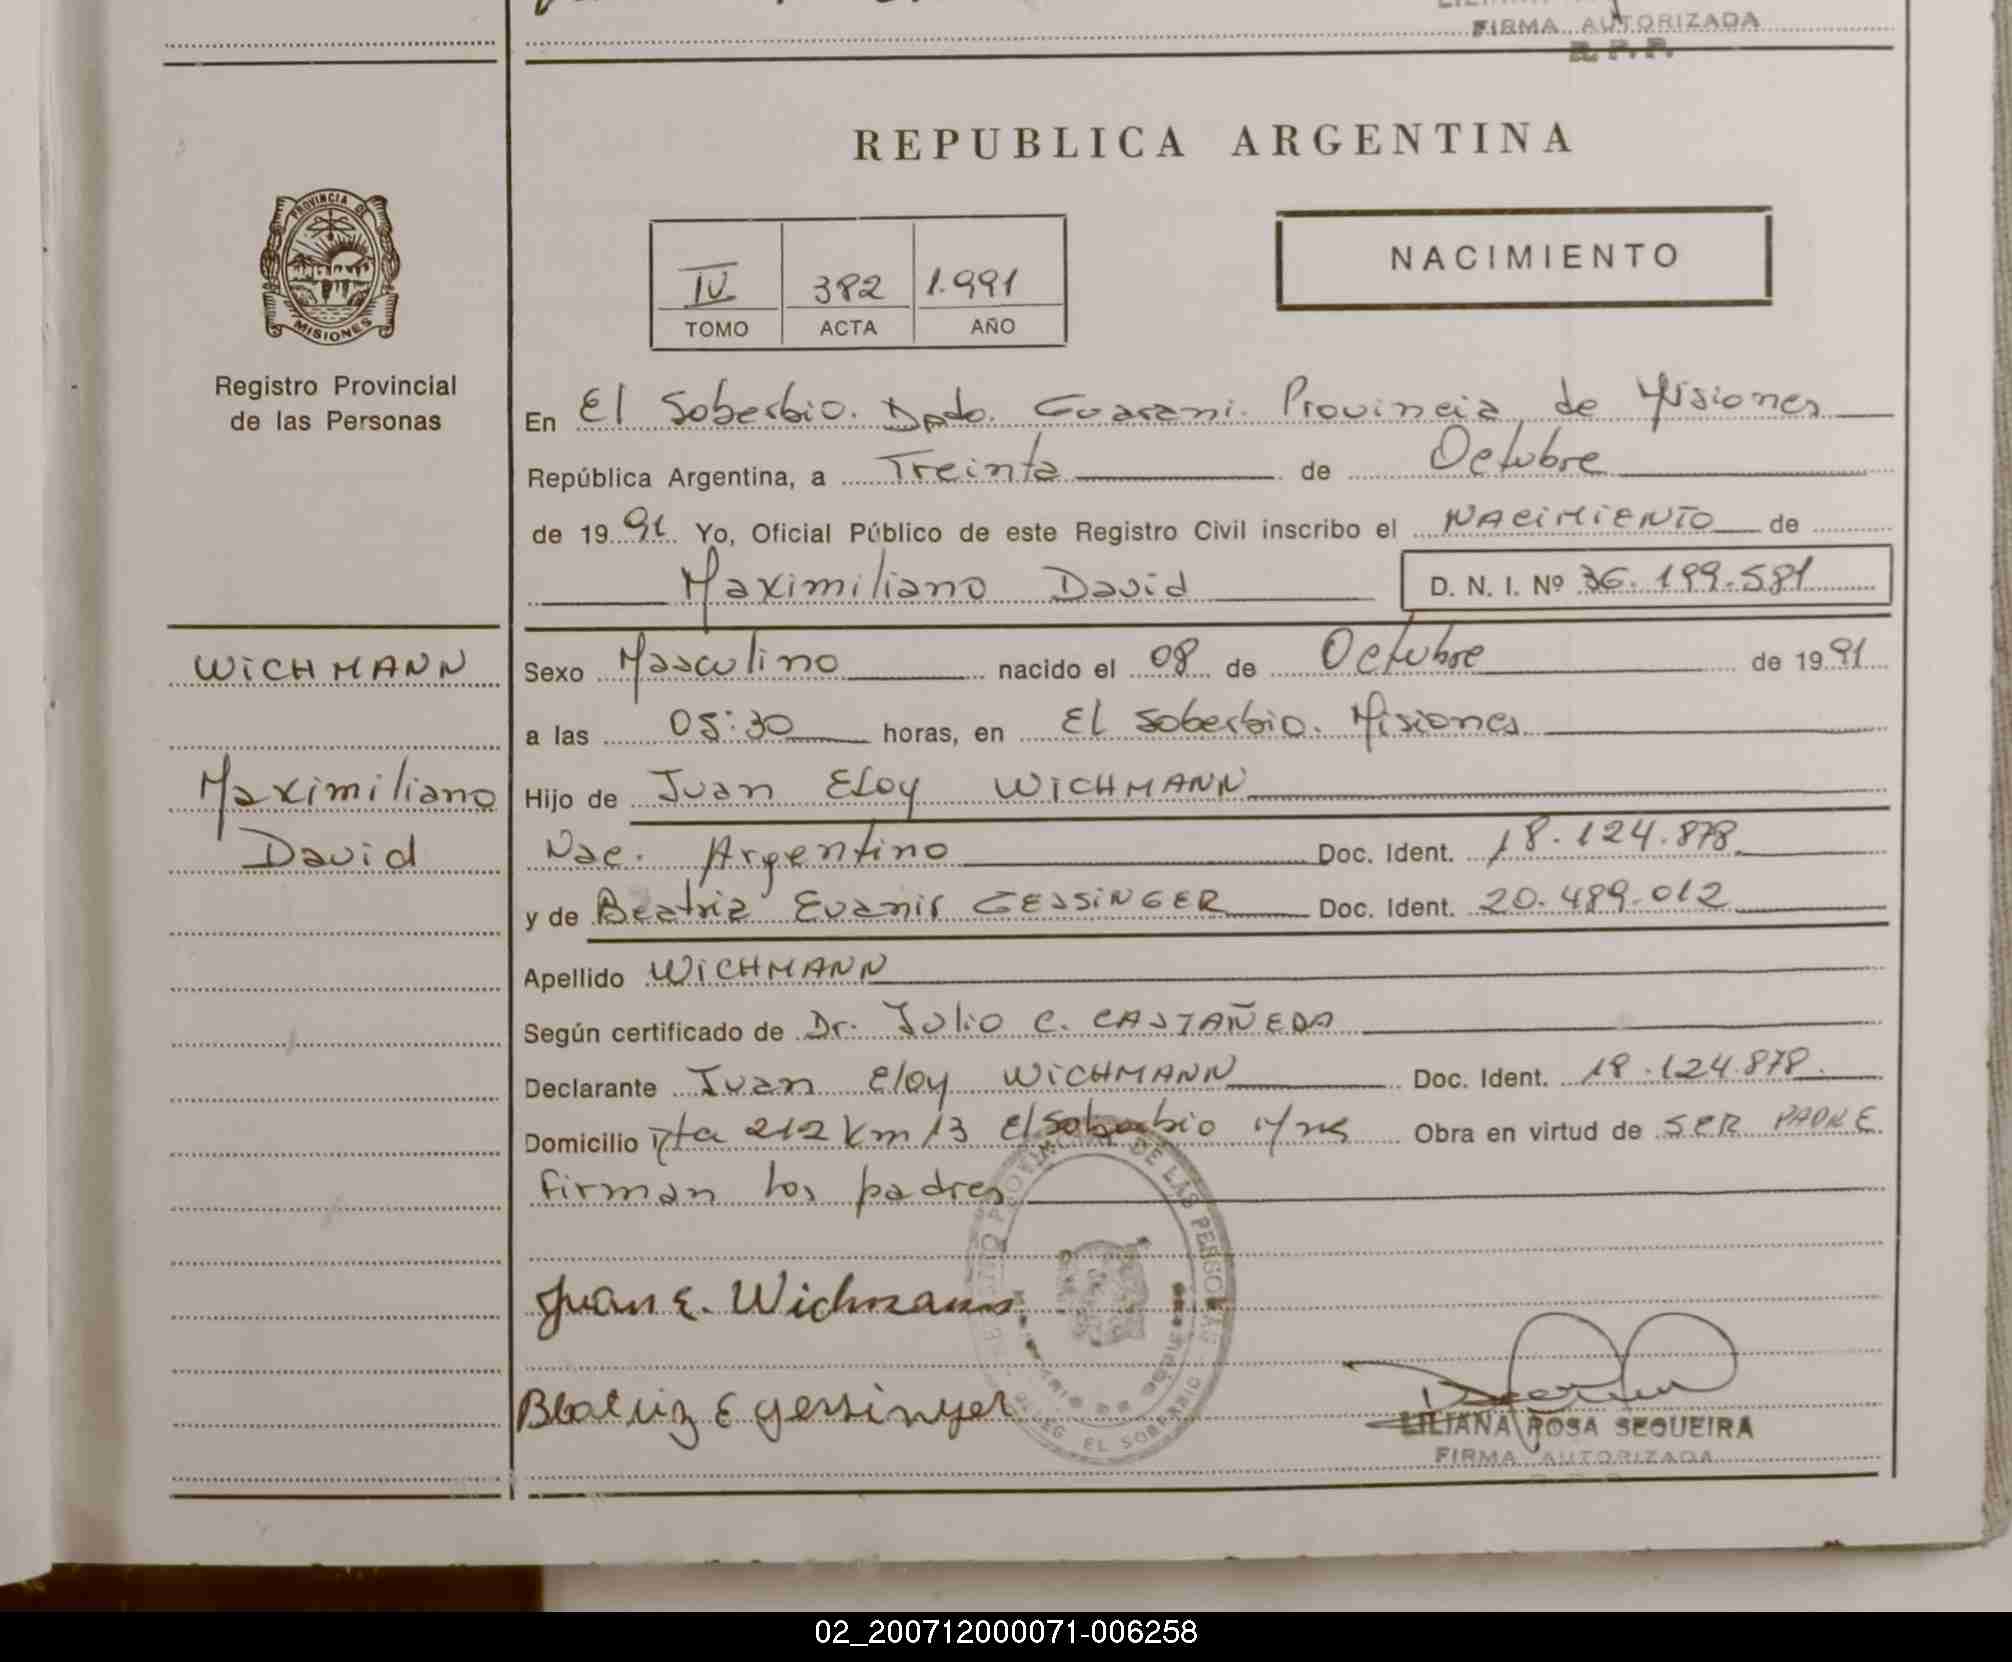 FIRMA AUTORIZADA
R. P. P.
REPUBLICA ARGENTINA
PROVINCIA DE
MISIONES
Registro Provincial
de las Personas
IV 382 1.991
TOMO ACTA AÑO
NACIMIENTO
En El Soberbio. Dpdo. Guarani. Provincia de Misiones
República Argentina, a Treinta de Octubre
de 1991 Yo, Oficial Público de este Registro Civil inscribo el NACIMIENTO de
Maximiliano David D. N. I. Nº 36.199.581
WICHMANN
Maximiliano
David
Sexo Masculino nacido el 08 de Octubre de 1991
a las 05:30 horas, en El Soberbio. Misiones
Hijo de Juan Eloy WICHMANN
Nac. Argentino Doc. Ident. 18.124.878
y de Beatriz Evanir GESSINGER Doc. Ident. 20.489.012
Apellido WICHMANN
Según certificado de Dr. Julio C. CASTAÑEDA
Declarante Juan Eloy WICHMANN Doc. Ident. 18.124.878.
Domicilio Rta 212 Km 13 El Soberbio Mnes Obra en virtud de SER PADRE
firman los padres
Juan E. Wichmann
Beatriz E gessinger
DE LAS PERSONAS
EL SOBERBIO
LILIANA ROSA SEQUEIRA
FIRMA AUTORIZADA
02_200712000071-006258